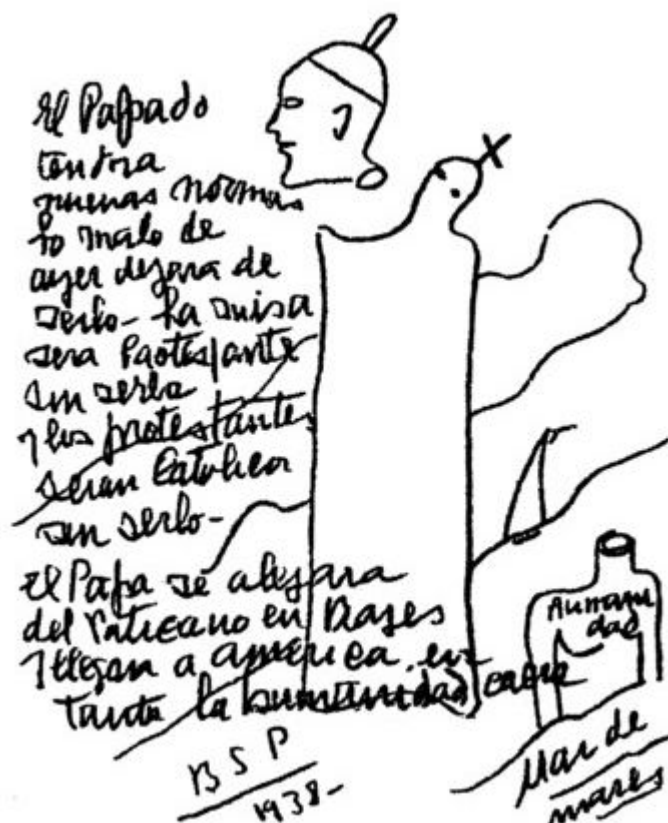 El Papado
tendra
nuevas normas
lo malo de
ayer dejara de
serlo- La misa
sera Protestante
sin serlo
y los protestantes
seran Catolicos
sin serlo-
El Papa se alejara
del Vaticano en viajes
y llegara a america, en
tanto la humanidad caera
B S P
1938-
Humani
dad
Mar de
mares